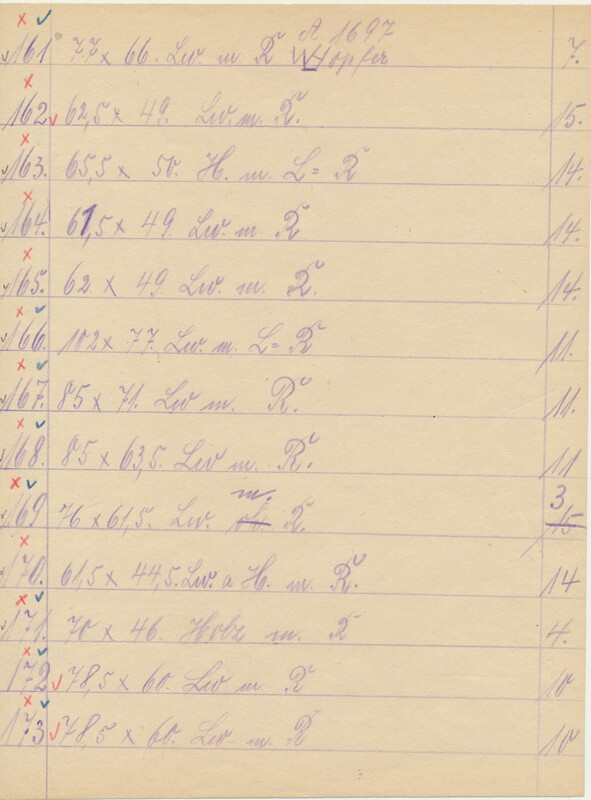 A 1697
161 77 x 66. Lw. m R Wopfer 7.
162 62,5 x 49. Lw. m. R. 15.
163. 65,5 x 50. H. m. L= R 14.
164. 61,5 x 49. Lw. m R 14.
165. 62 x 49 Lw. m. R. 14.
166. 102 x 77. Lw. m. L= R 11.
167. 85 x 71. Lw m. R. 11.
168. 85 x 63,5. Lw m. R. 11
m. 3
169 76 x 61,5. Lw. R. 15
170. 61,5 x 44,5. Lw. a H. m. R. 14
171. 70 x 46. Holz m. R 4.
172 78,5 x 60. Lw m. R 10
173 78,5 x 60. Lw m. R 10